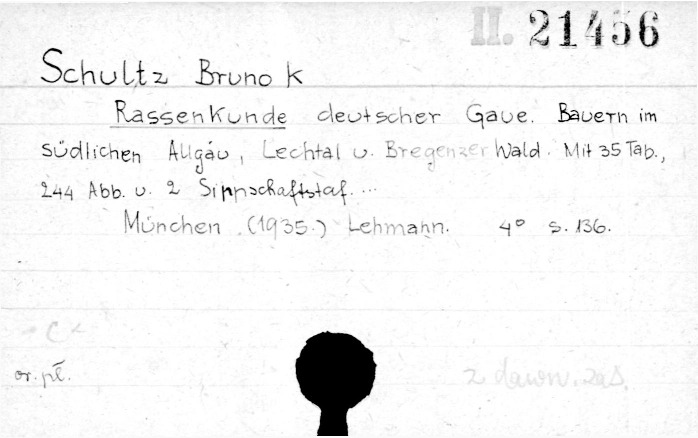 II. 21456
Schultz Bruno K
Rassenkunde deutscher Gaue. Bauern im
südlichen Allgäu, Lechtal u. Bregenzer Wald. Mit 35 Tab.,
244 Abb. u. 2 Sippschaftstaf. ...
München (1935.) Lehmann. 4° S. 136.
or. pł.
z dawn. zas.